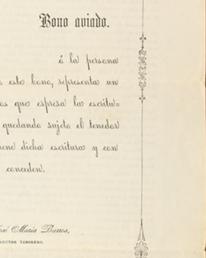 Bono aviado.
á la persona
esto bono, representa un
os que espresa la escritu=
quedando sujeto el tenedor
ene dicha escritura y con
conceden.
sé María Duzoa,
DIRECTOR TESORERO.